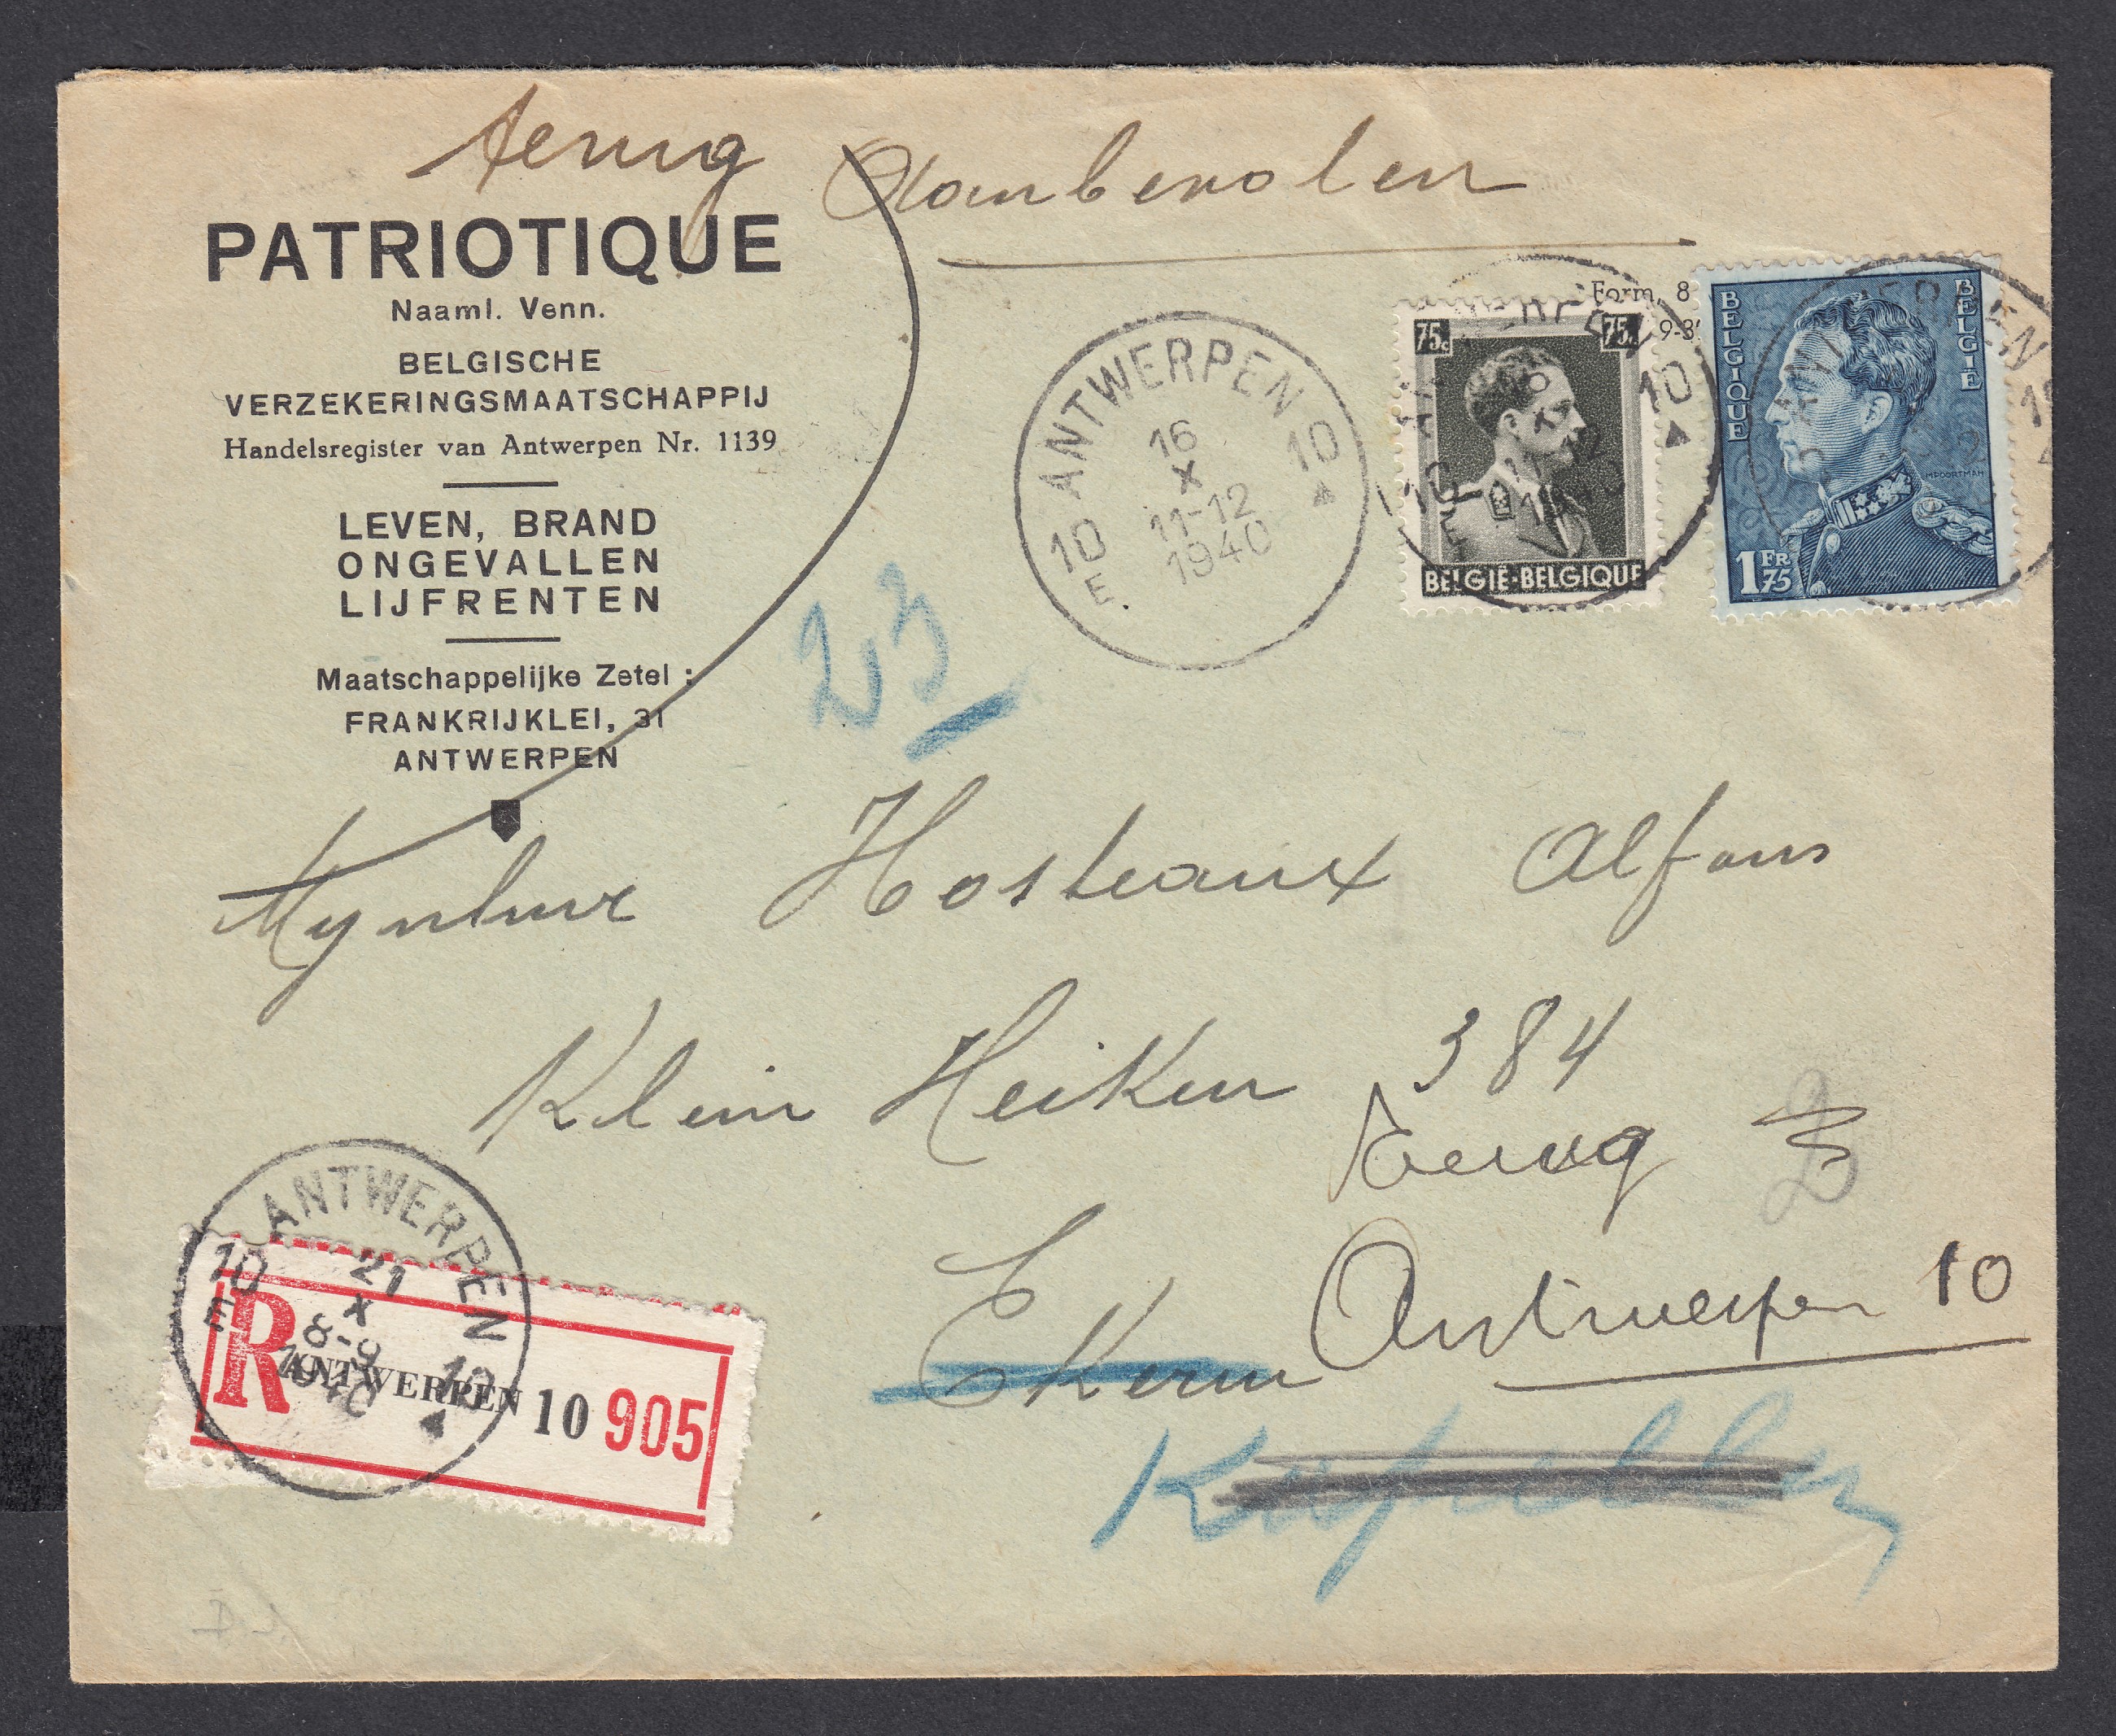 terug Aanbevolen
PATRIOTIQUE
Naaml. Venn.
BELGISCHE
VERZEKERINGSMAATSCHAPPIJ
Handelsregister van Antwerpen Nr. 1139
LEVEN, BRAND
ONGEVALLEN
LIJFRENTEN
Maatschappelijke Zetel :
FRANKRIJKLEI, 31
ANTWERPEN
Form. 8
9-3
ANTWERPEN 10
16
X
11-12
1940
10
E
75c 75c
BELGIË-BELGIQUE
10
E
10
1940
BELGIQUE
BELGIË
M.POORTMAN
1FR75
ANTWERPEN
23
Mynheer Hosteaux Alfons
Klein Heiken 384
Terug
Ekeren Antwerpen 10
Kapellen
ANTWERPEN 10
21
X
8-9
1940
10
E
R ANTWERPEN 10 905